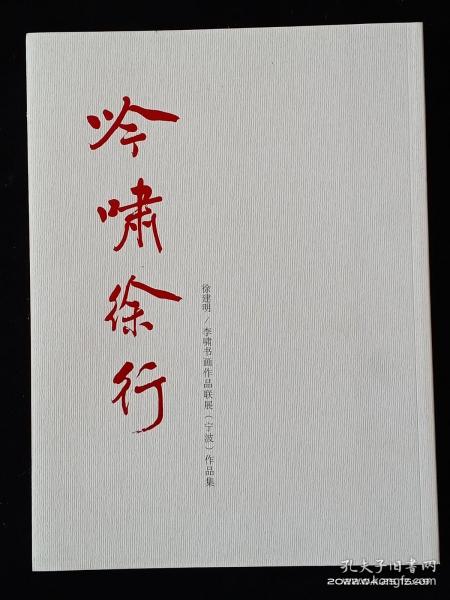 吟啸徐行
徐建明/李啸书画作品联展(宁波)作品集
孔夫子旧书网